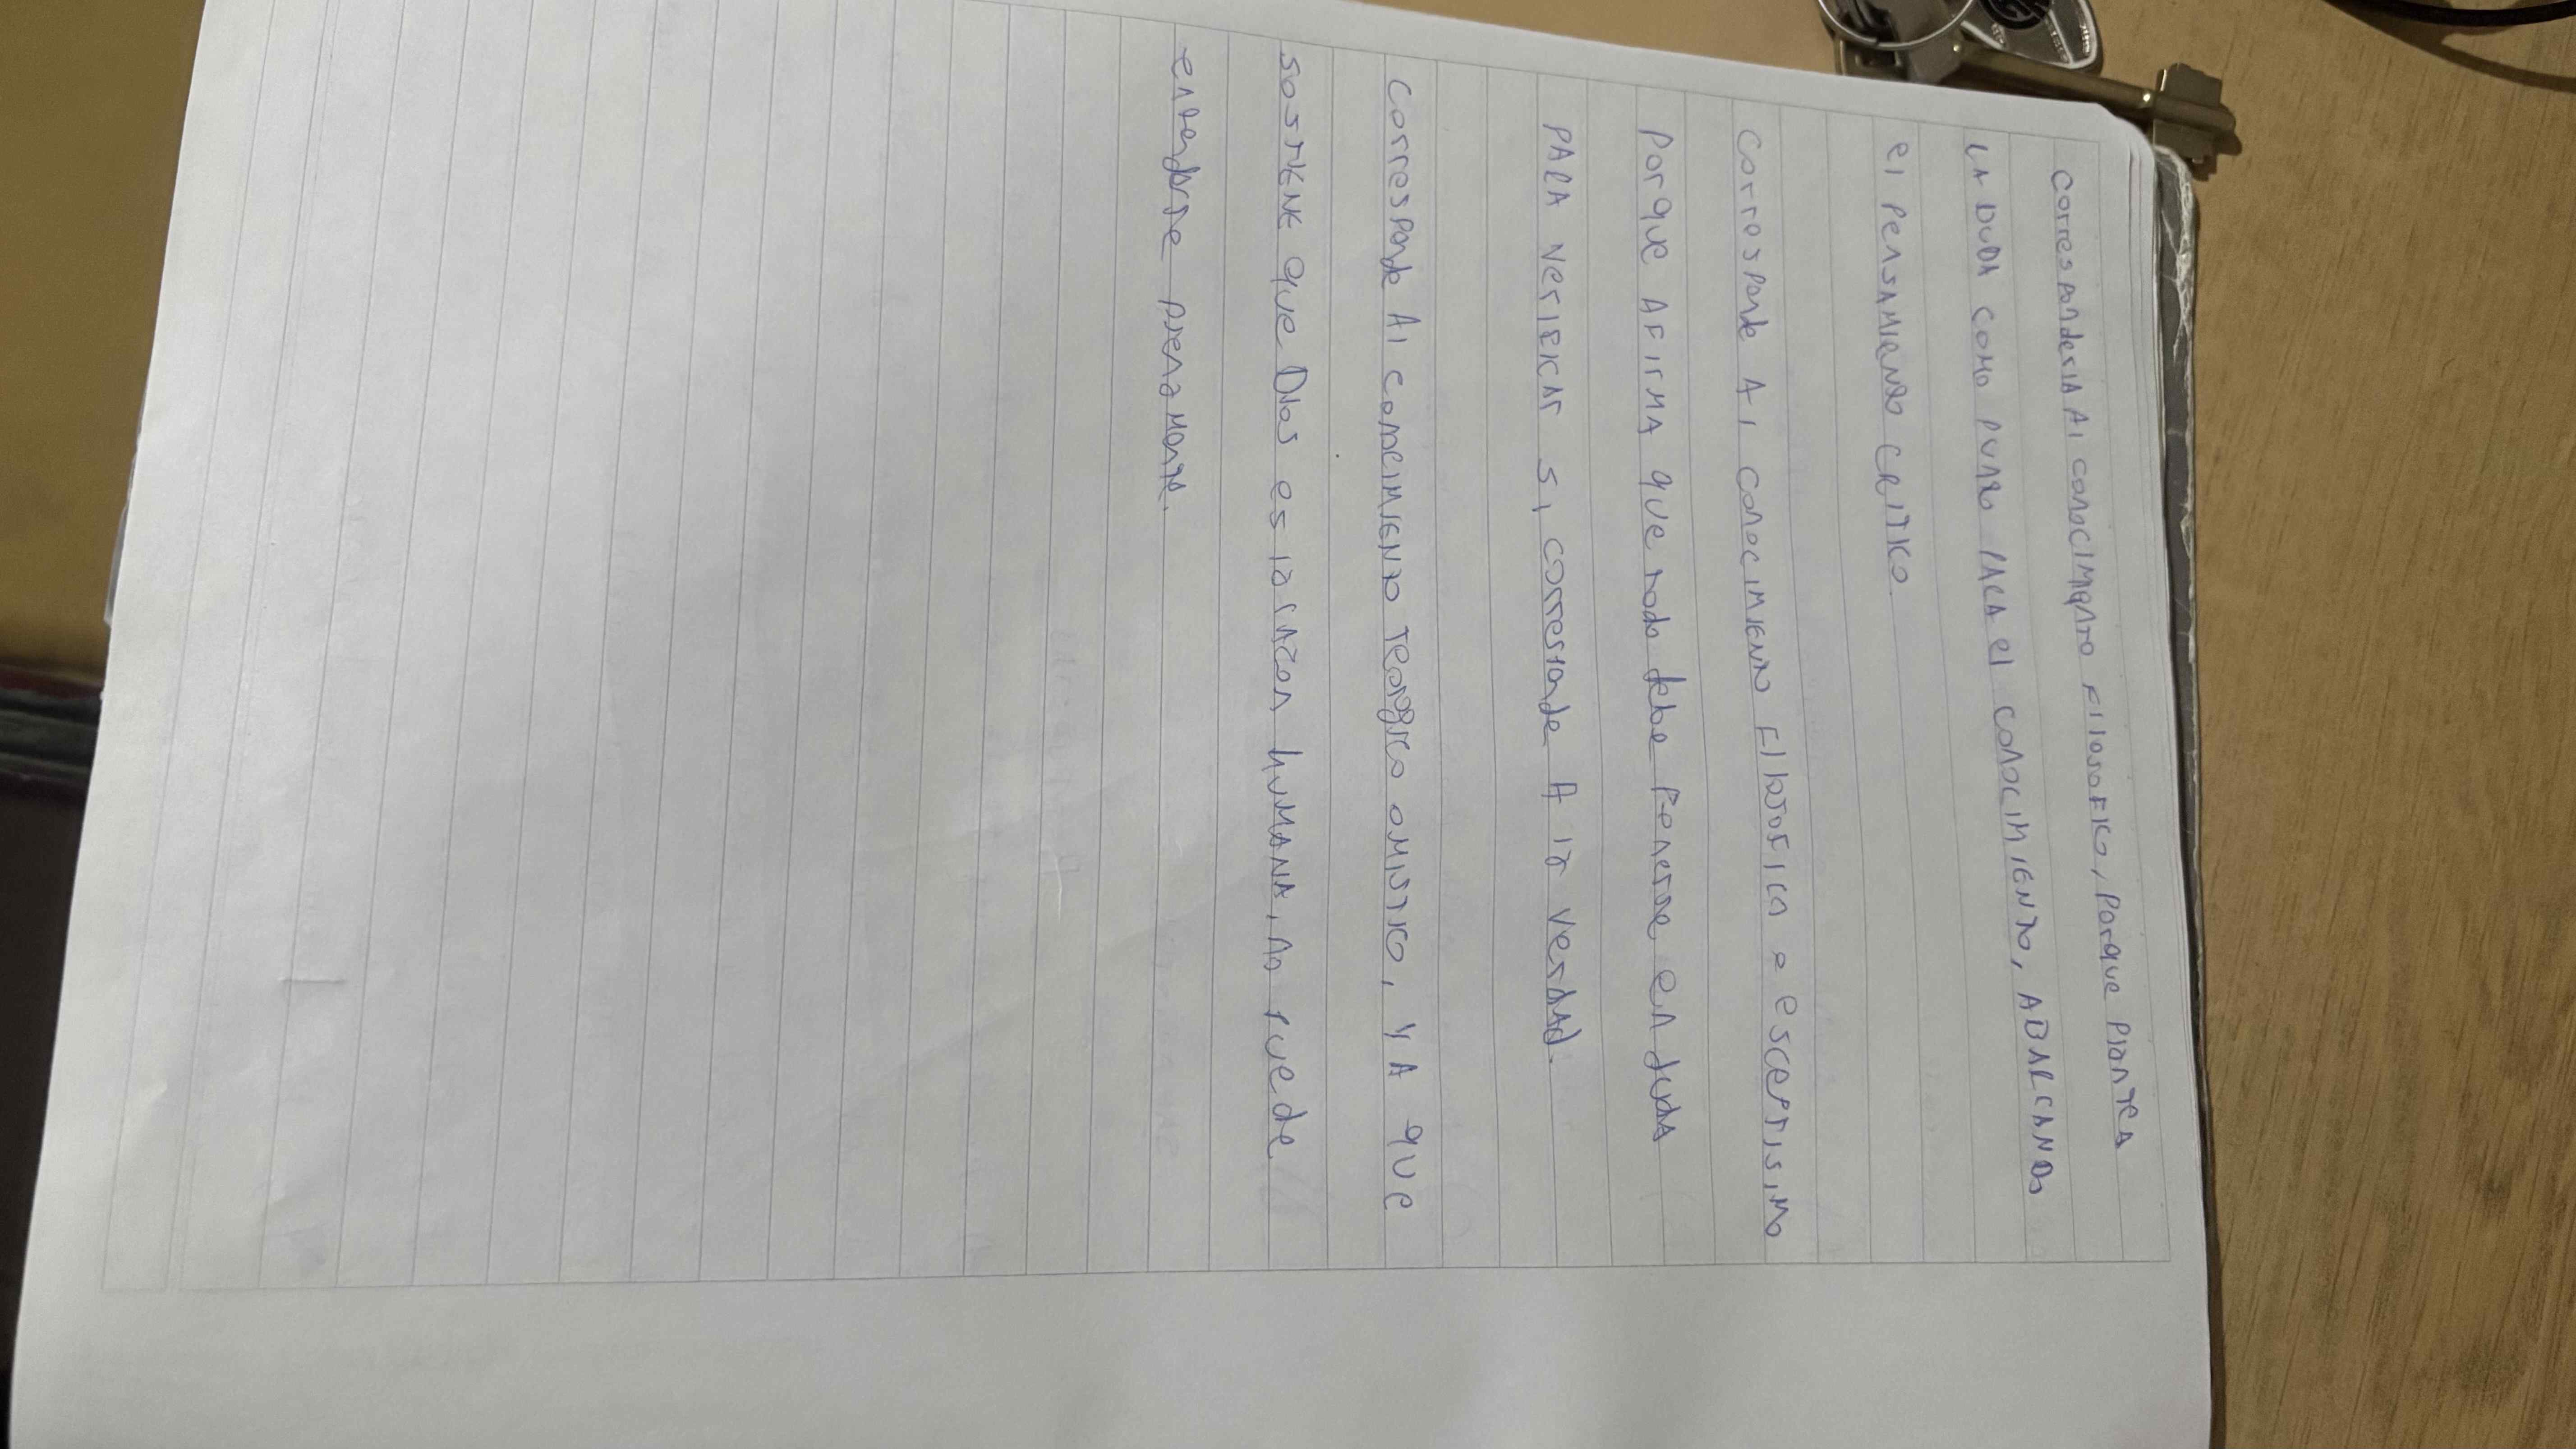 Corresponderia Al conocimiento Filosofico, Porque Plantea
LA DUDA como punto PARA el conocimiento, ABARCANDO
el pensamiento critico.
Corresponde Al conocimiento Filosofico o escepticismo
Porque AFIRMA que todo debe Ponerse en duda
PARA verificar si corresponde A la verdad.
Corresponde Al conocimiento Teologico o mistico, YA que
sostiene que Dios es la razon humana, no puede
entenderse plenamente.